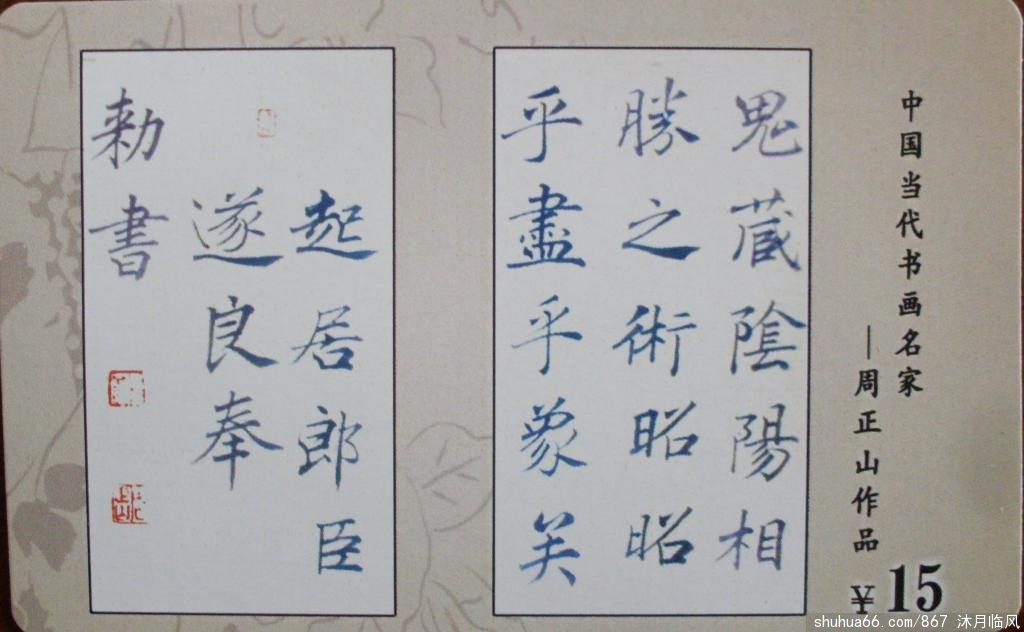 中国当代书画名家
—周正山作品
¥15
鬼蔵陰陽相
勝之術昭昭
乎盡乎象矣
起居郎臣
遂良奉
勅書
shuhua66.com/867 沐月临风